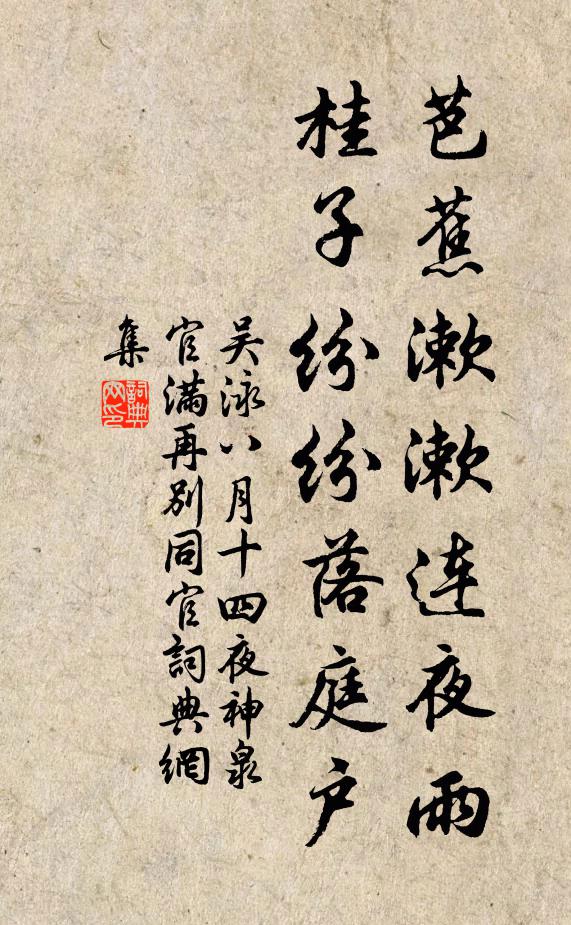 芭蕉漱漱连夜雨
桂子纷纷落庭户
吴泳八月十四夜神泉
官满再别同官詞典網
集
詞典
网印